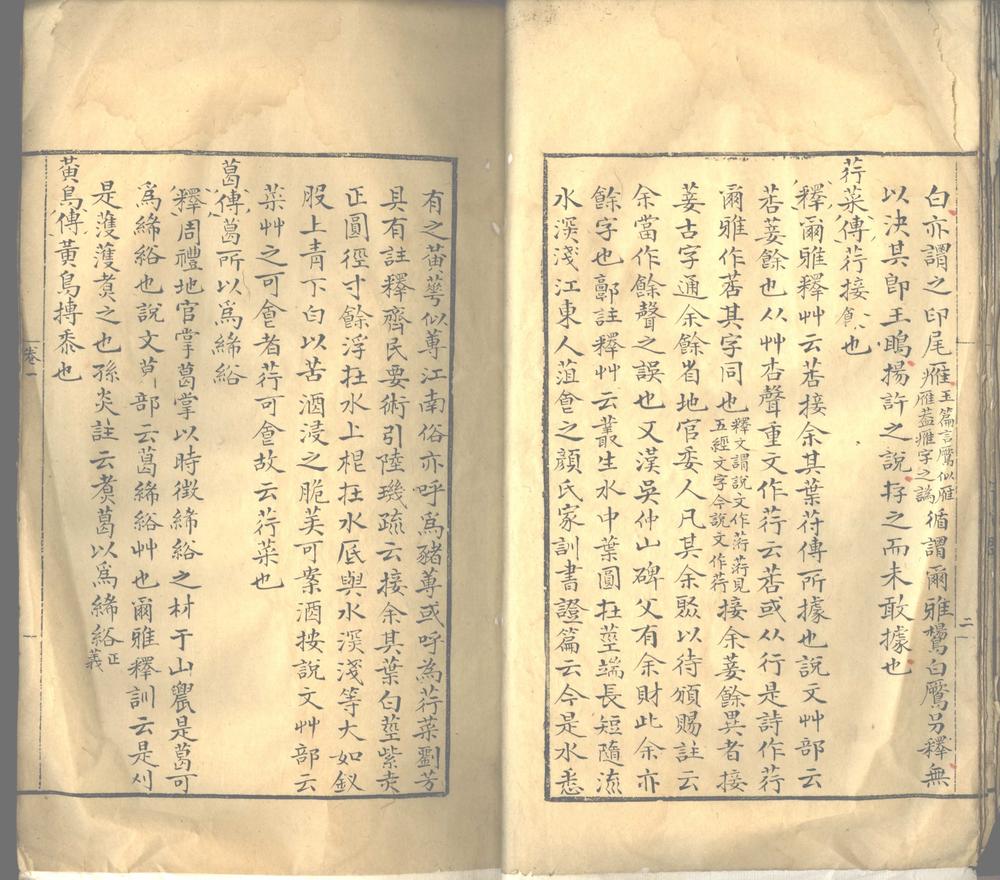 白亦謂之印尾䧹玉篇言鷹似雁雁葢䧹字之譌循謂爾雅鸉白鷢另釋無
以決其卽王鴡揚許之說存之而未敢據也
荇菜傳荇接余也
釋爾雅釋艸云莕接余其葉苻傳所據也說文艸部云
莕菨餘也从艸杏聲重文作荇云莕或从行是詩作荇
爾雅作莕其字同也釋文謂說文作䓷䓷見五經文字今說文作荇接余菨餘異者接
菨古字通余餘省地官委人凡其余聚以待頒賜註云
余當作餘聲之誤也又漢吳仲山碑父有余財此余亦
餘字也郭註釋艸云叢生水中葉圓在莖端長短隨流
水深淺江東人菹食之顔氏家訓書證篇云今是水悉
有之黃蕚似蓴江南俗亦呼爲豬蓴或呼為荇菜劉芳
具有註釋齊民要術引陸璣疏云接余其葉白莖紫赤
正圓徑寸餘浮在水上根在水底與水深淺等大如釵
股上青下白以苦酒浸之脆美可案酒按說文艸部云
菜艸之可食者荇可食故云荇菜也
葛傳葛所以爲絺綌
釋周禮地官掌葛掌以時徵絺綌之材于山農是葛可
爲絺綌也說文艸部云葛絺綌艸也爾雅釋訓云是刈
是濩濩煮之也孫炎註云煮葛以爲絺綌正義
黃鳥傳黃鳥搏黍也
卷一
二